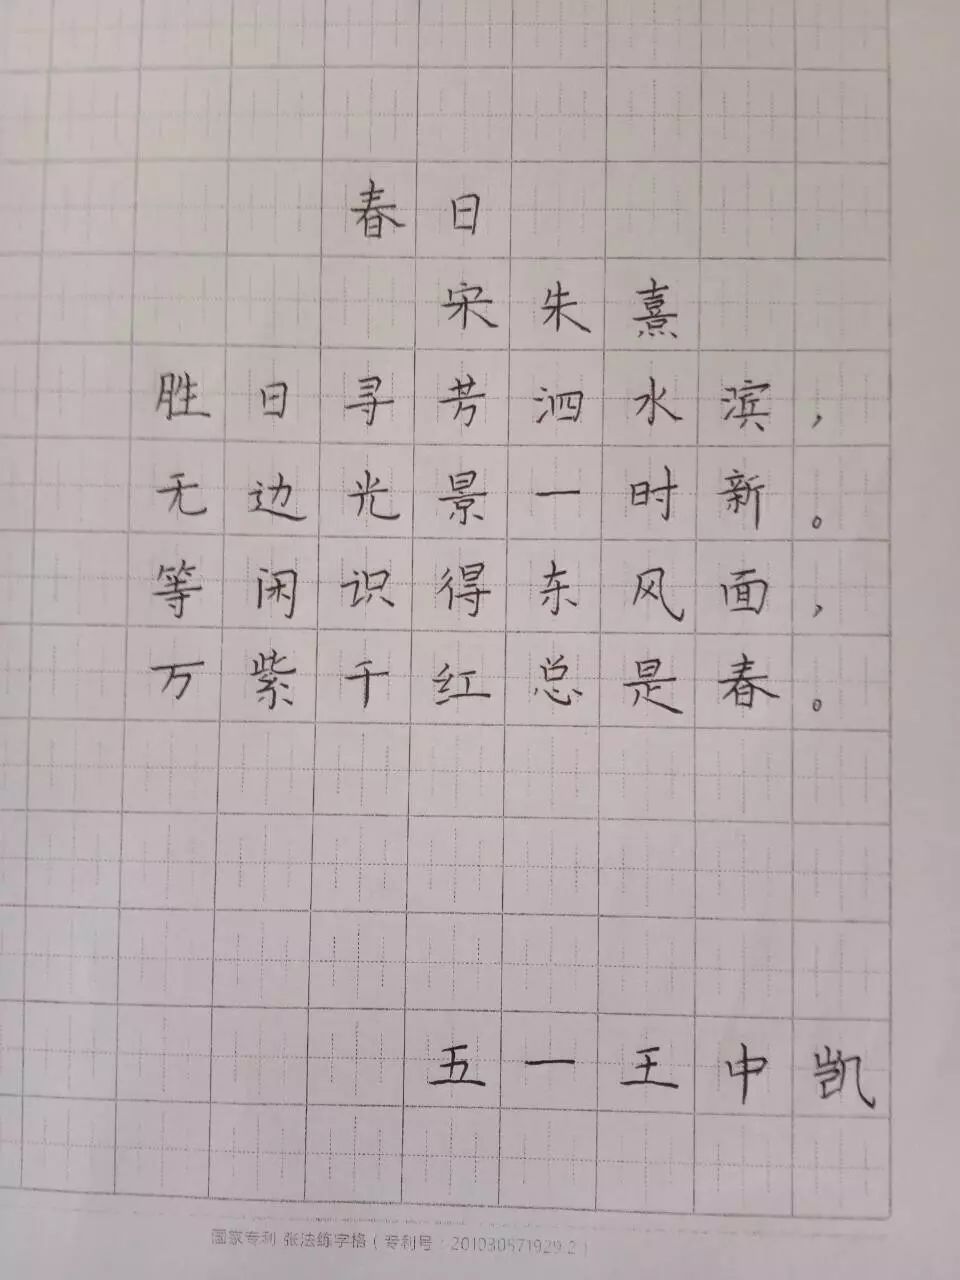 春日
宋朱熹
胜日寻芳泗水滨，
无边光景一时新。
等闲识得东风面，
万紫千红总是春。
五一王中凯
国家专利 张法练字格（专利号：201030571929.2）